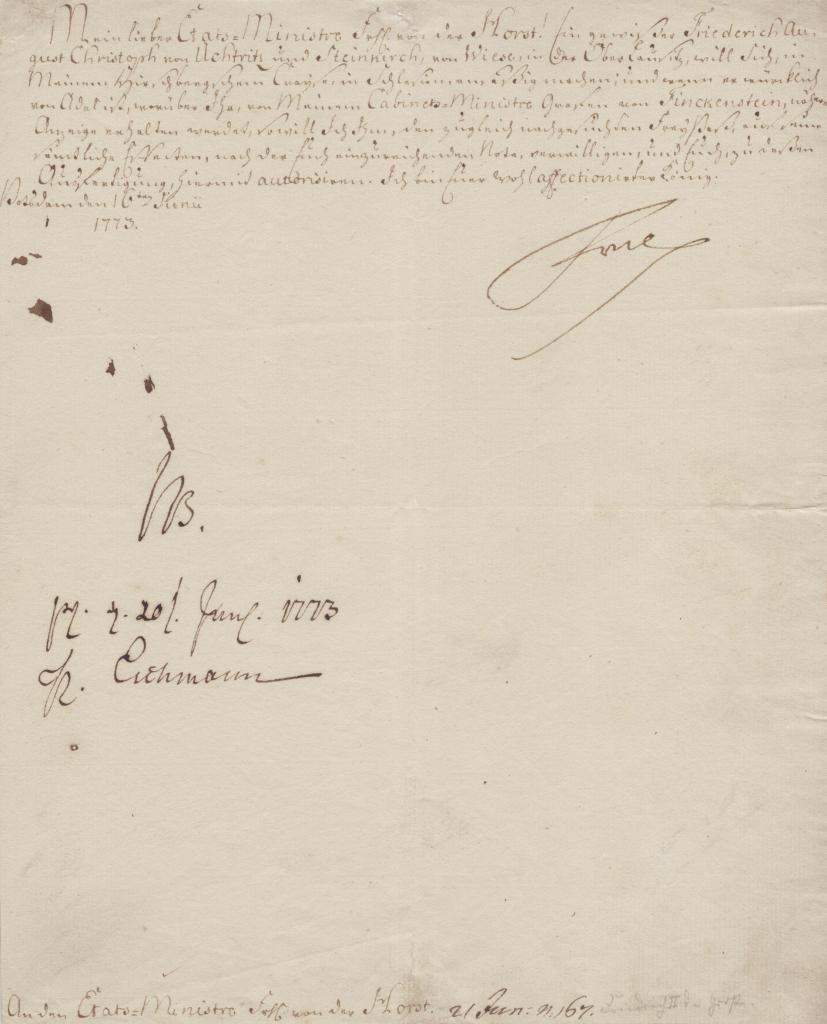 Mein lieber Etats-Ministre Frhr. von der Horst! Ein gewißer Friederich Au-
gust Christoph von Uchtritz und Steinkirch, von Wiese, in der Oberlausitz, will Sich, in
Meinem Hirschbergschen Crayse, in Schlesien ansäßig machen; und wenn er würcklich
von Adel ist, worüber Ihr, von Meinem Cabinets-Ministre Grafen von Finckenstein, nähere
Anzeige erhalten werdet, so will Ich Ihm, den zugleich nachgesuchten Freypaß, auf seine
sämtliche Effecten, nach der Euch einzureichenden Nota, verwilligen, und Euch, zu deßen
Ausfertigung, hiermit autorisiren. Ich bin Euer wohl affectionirter König.
Potsdam den 16ten Junii
1773.
Frch
NB.
pr. d. 20t. Juny. 1773
R. Eichmann
An den Etats-Ministre Frh. von der Horst. 21 Jun: n. 167. Friedrich II der Große.